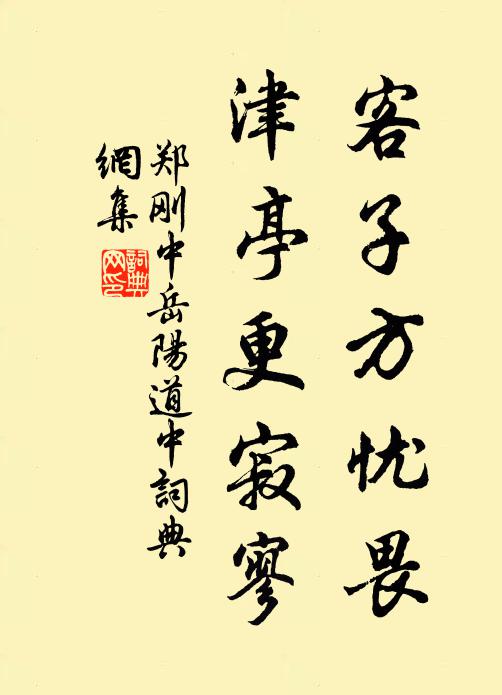 客子方忧畏
津亭更寂寥
郑刚中岳陽道中詞典
網集
詞典
网印